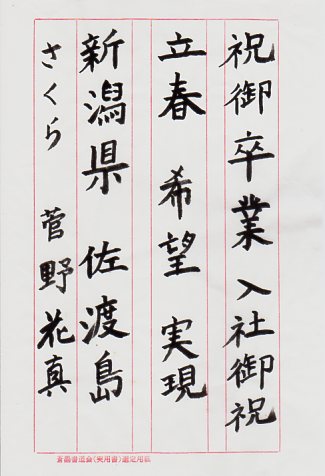 祝御卒業 入社御祝
立春 希望 実現
新潟県 佐渡島
さくら 菅野花真
蒼墨書道会(実用書)選定用紙